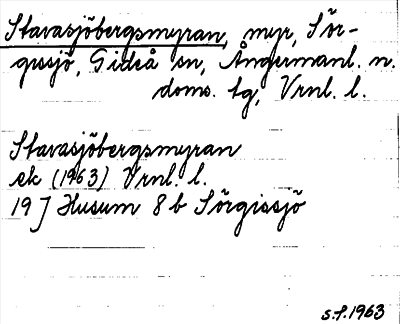 Stavasjöbergsmyran, myr, Sör-
gissjö, Gideå sn, Ångermanl. n.
doms. tg, Vrnl. l.
Stavasjöbergsmyran
ek (1963) Vrnl. l.
19 J Husum 8 b Sörgissjö
s.f. 1963